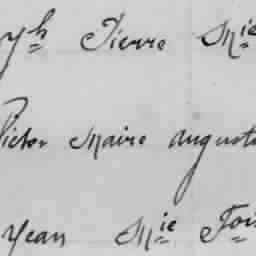 Jh Pierre Mie
Victor Marie August
Jean Mie Fois